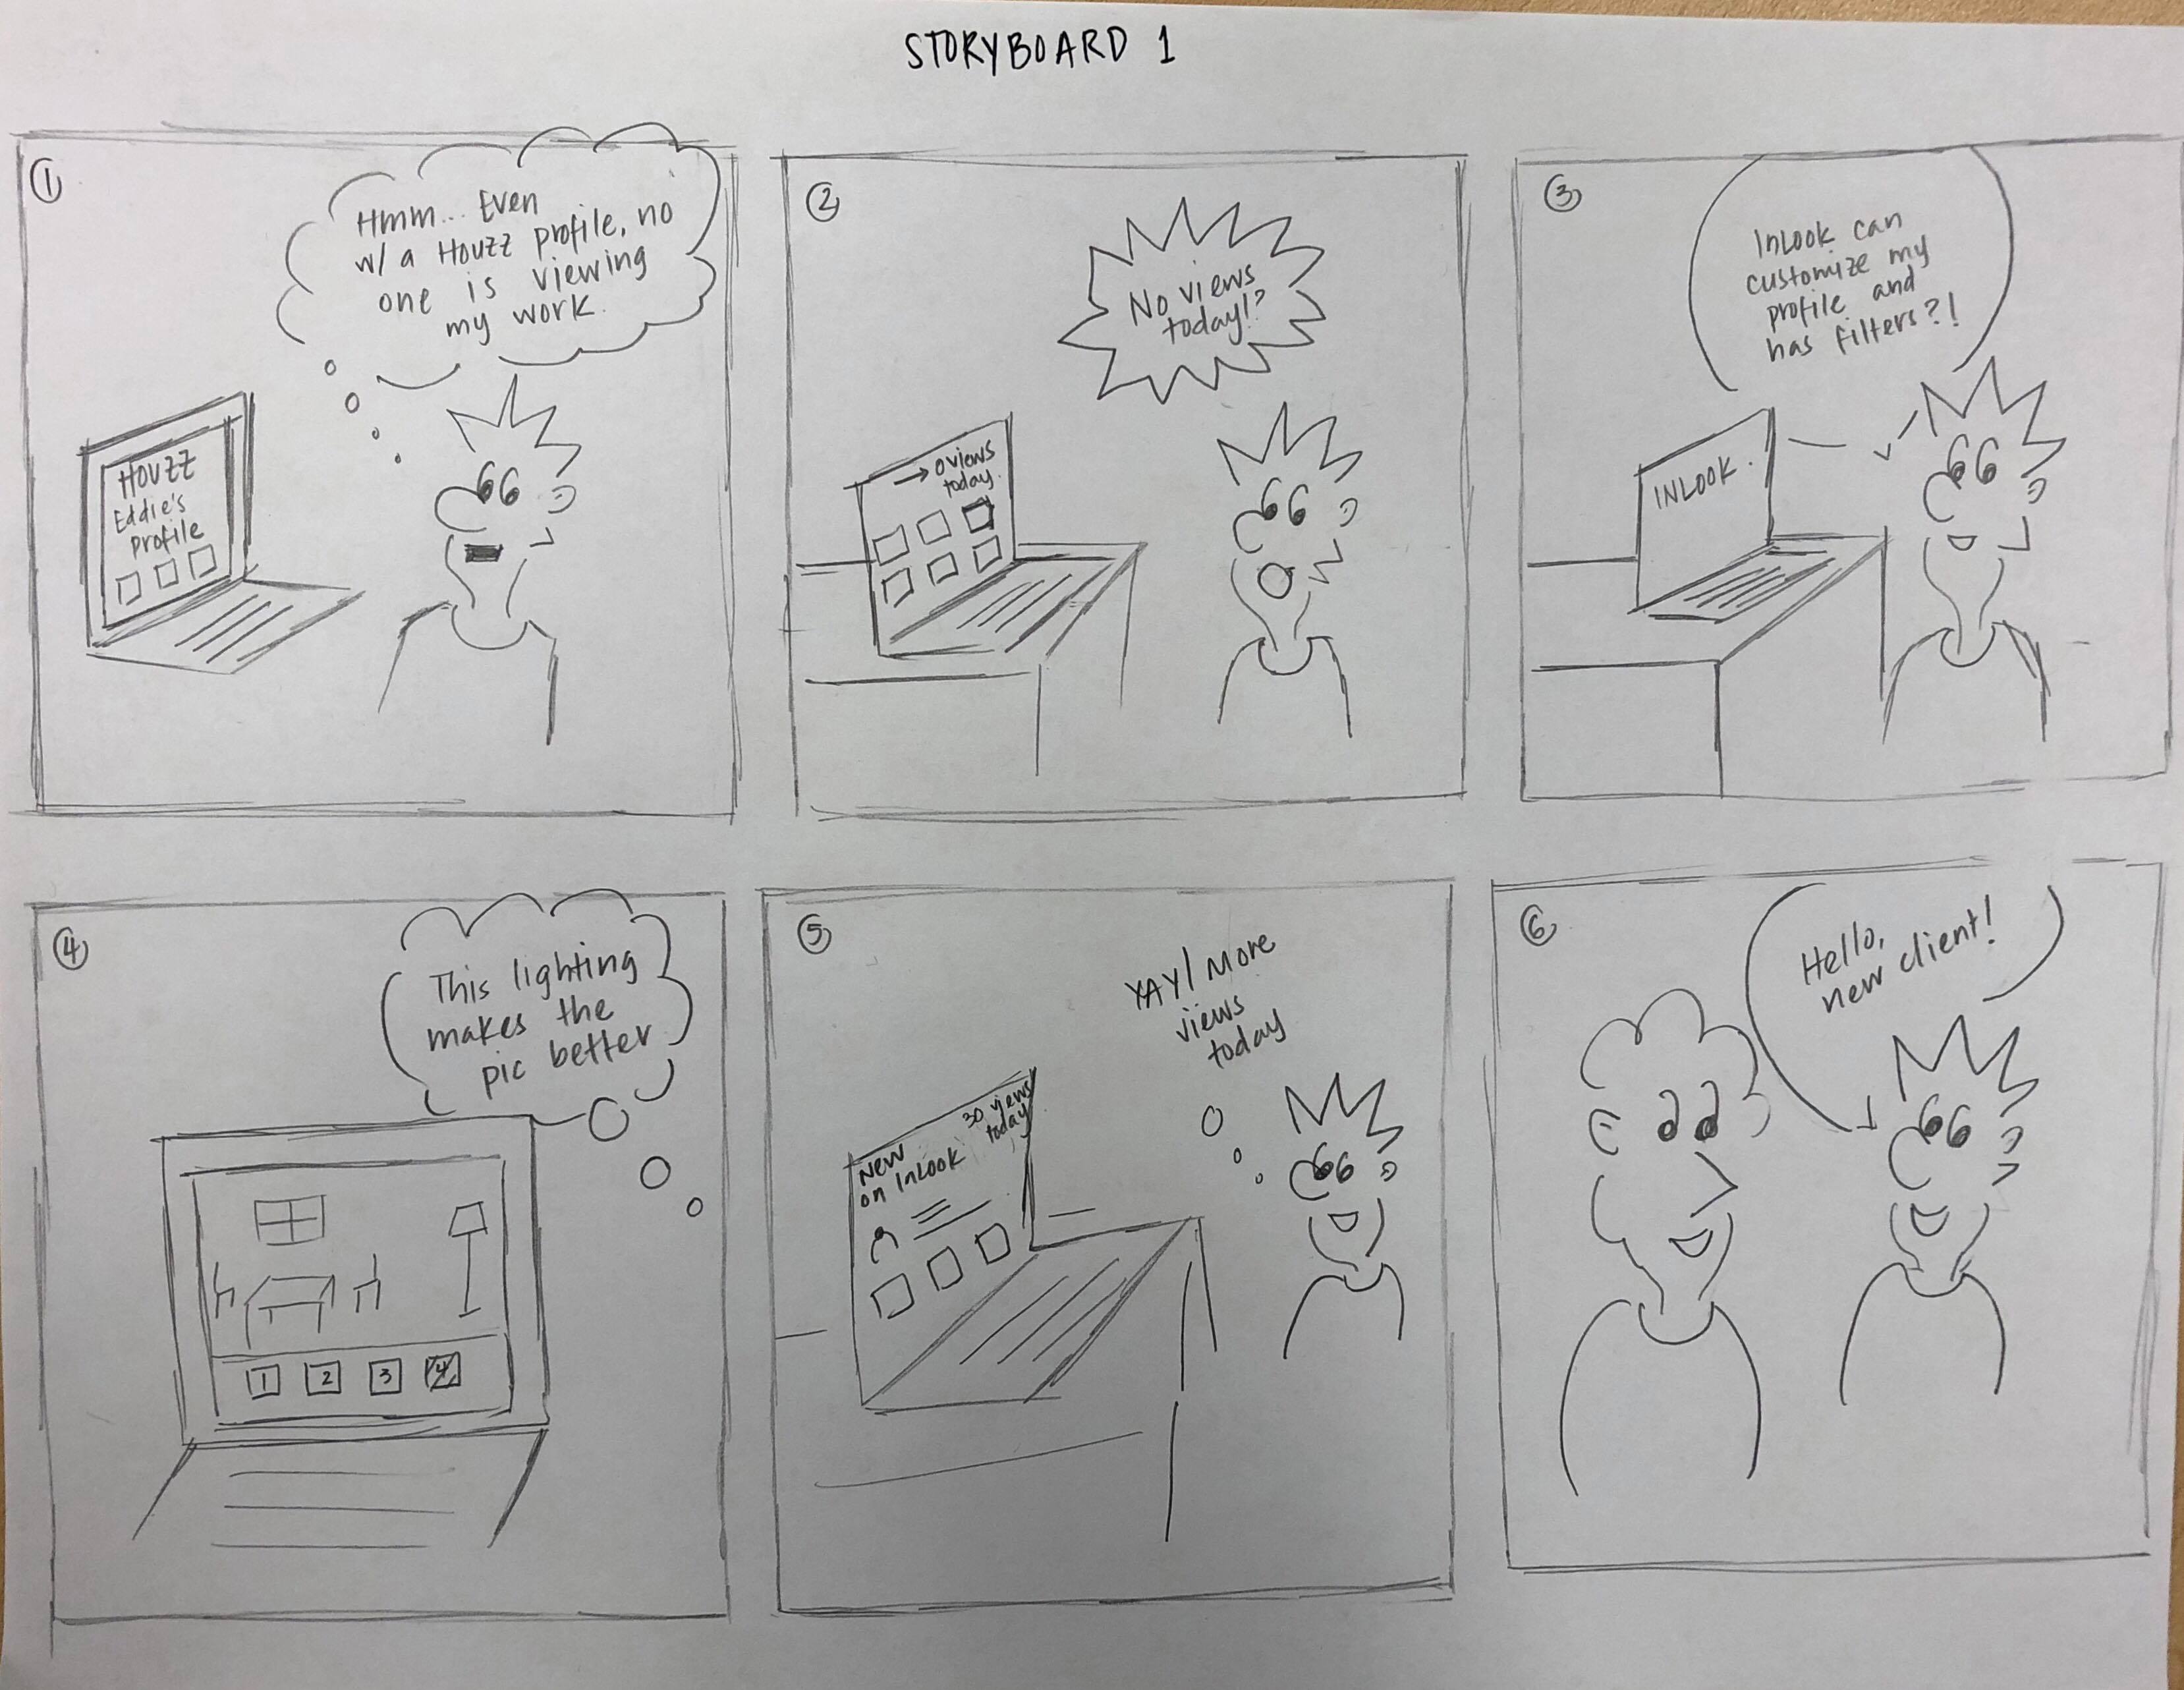 STORYBOARD 1
①
Hmm... Even
w/ a Houzz profile, no
one is viewing
my work.
HOUZZ
Eddie's
profile
②
No views
today!?
→ 0 views
today.
③
InLook can
customize my
profile and
has filters?!
INLOOK.
④
This lighting
makes the
pic better
1 2 3 4
⑤
YAY! More
views
today
30 views
today
New
on InLook
⑥
Hello,
new client!